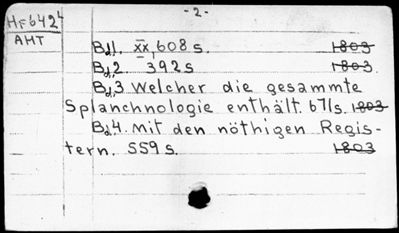 - 2 -
HF642⁴
AHT
Bd,1. XX,608 s. 1803
Bd,2. 392 s 1803.
Bd,3 Welcher die gesammte
Splanchnologie enthält. 671s. 1803
Bd,4. mit den nöthigen Regis-
tern. 559 s. 1803